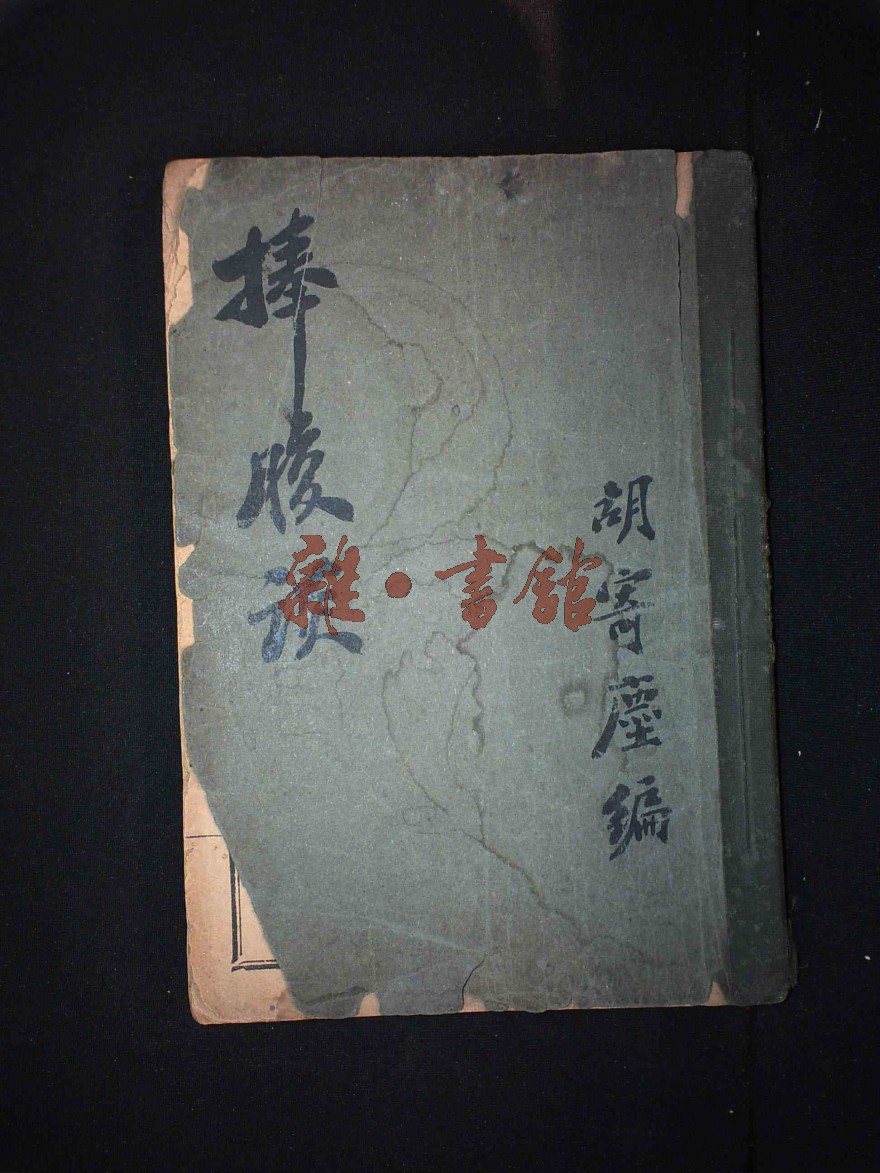 胡寄塵編
捧腹談
雜·書館